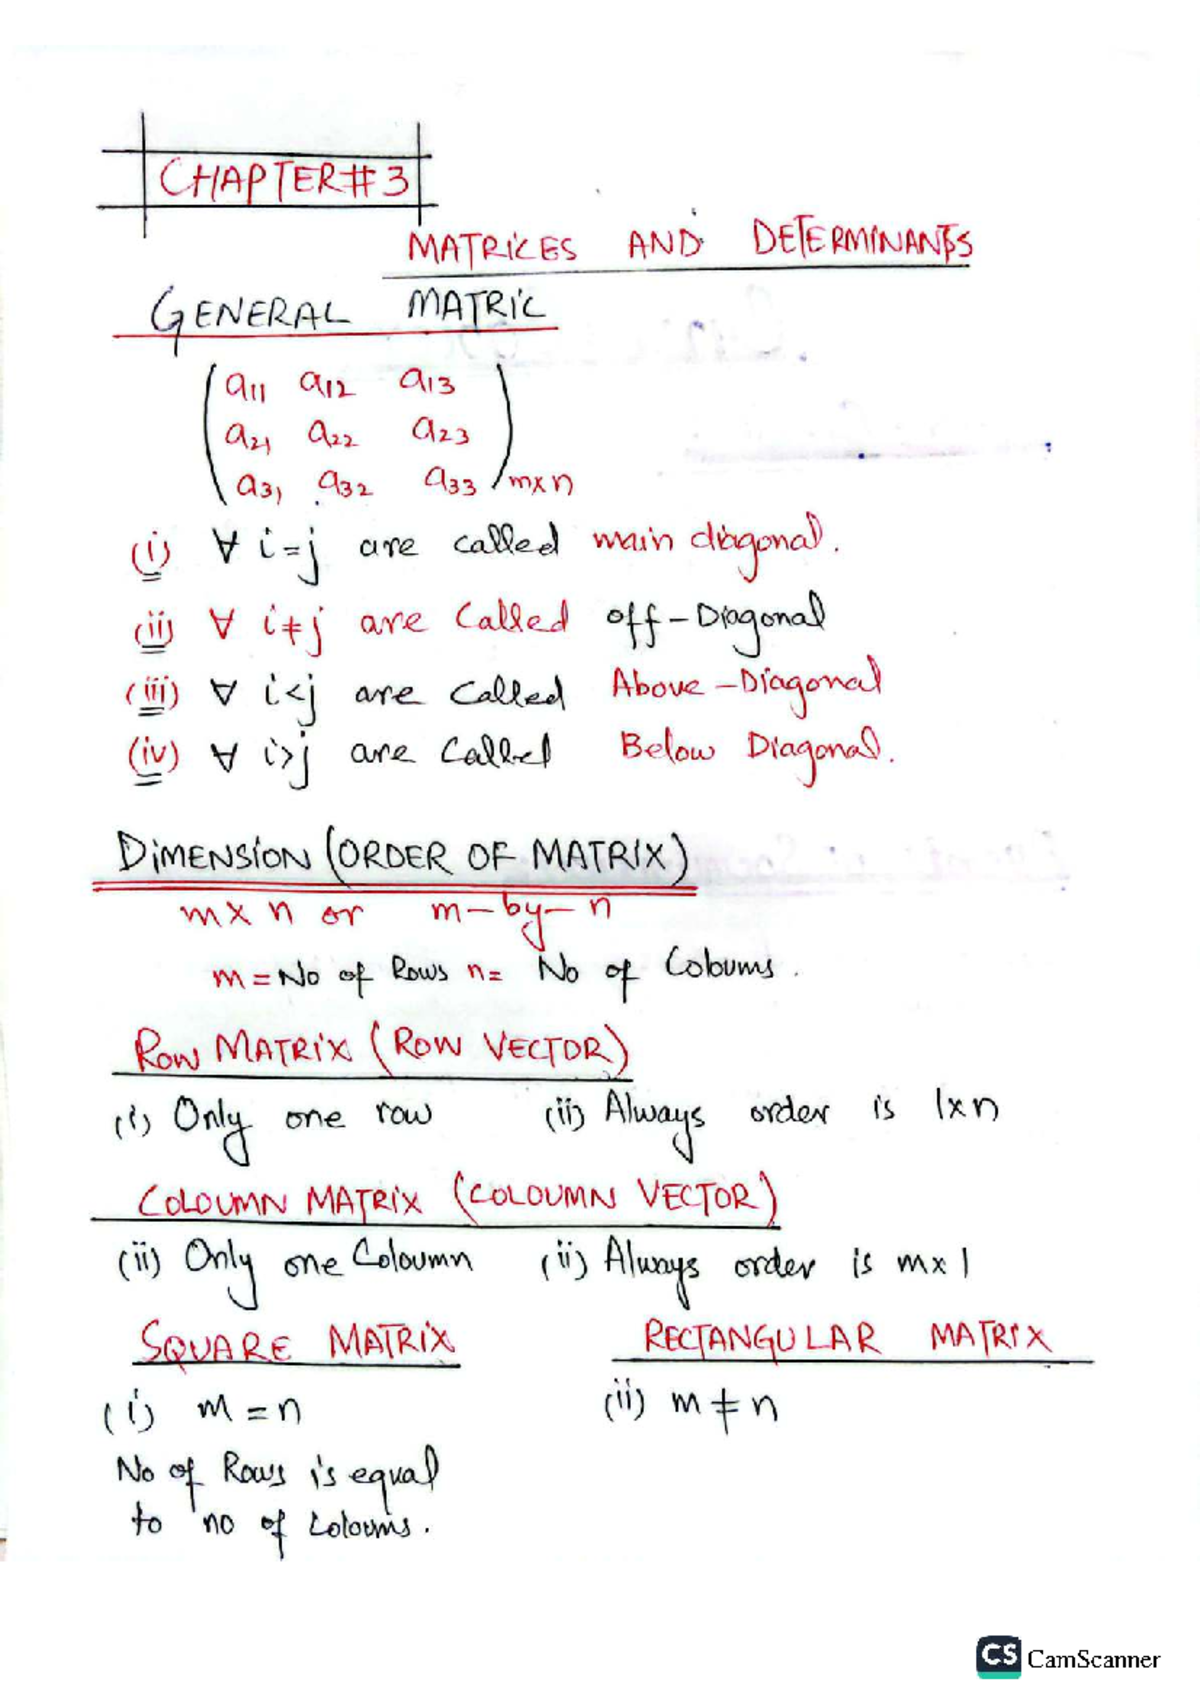 CHAPTER# 3
MATRICES AND DETERMINANTS
GENERAL MATRIC
a11 a12 a13
a21 a22 a23
a31 a32 a33 m×n
(i) ∀ i=j are called main diagonal.
(ii) ∀ i≠j are Called off-Diagonal
(iii) ∀ i<j are Called Above-Diagonal
(iv) ∀ i>j are Called Below Diagonal.
DIMENSION (ORDER OF MATRIX)
m×n or m-by-n
m=No of Rows n= No of Coloums.
ROW MATRIX (ROW VECTOR)
(i) Only one row (ii) Always order is 1×n
COLOUMN MATRIX (COLOUMN VECTOR)
(ii) Only one Coloumn (ii) Always order is m×1
SQUARE MATRIX RECTANGULAR MATRIX
(i) m=n (ii) m≠n
No of Rows is equal
to no of Coloums.
CS CamScanner